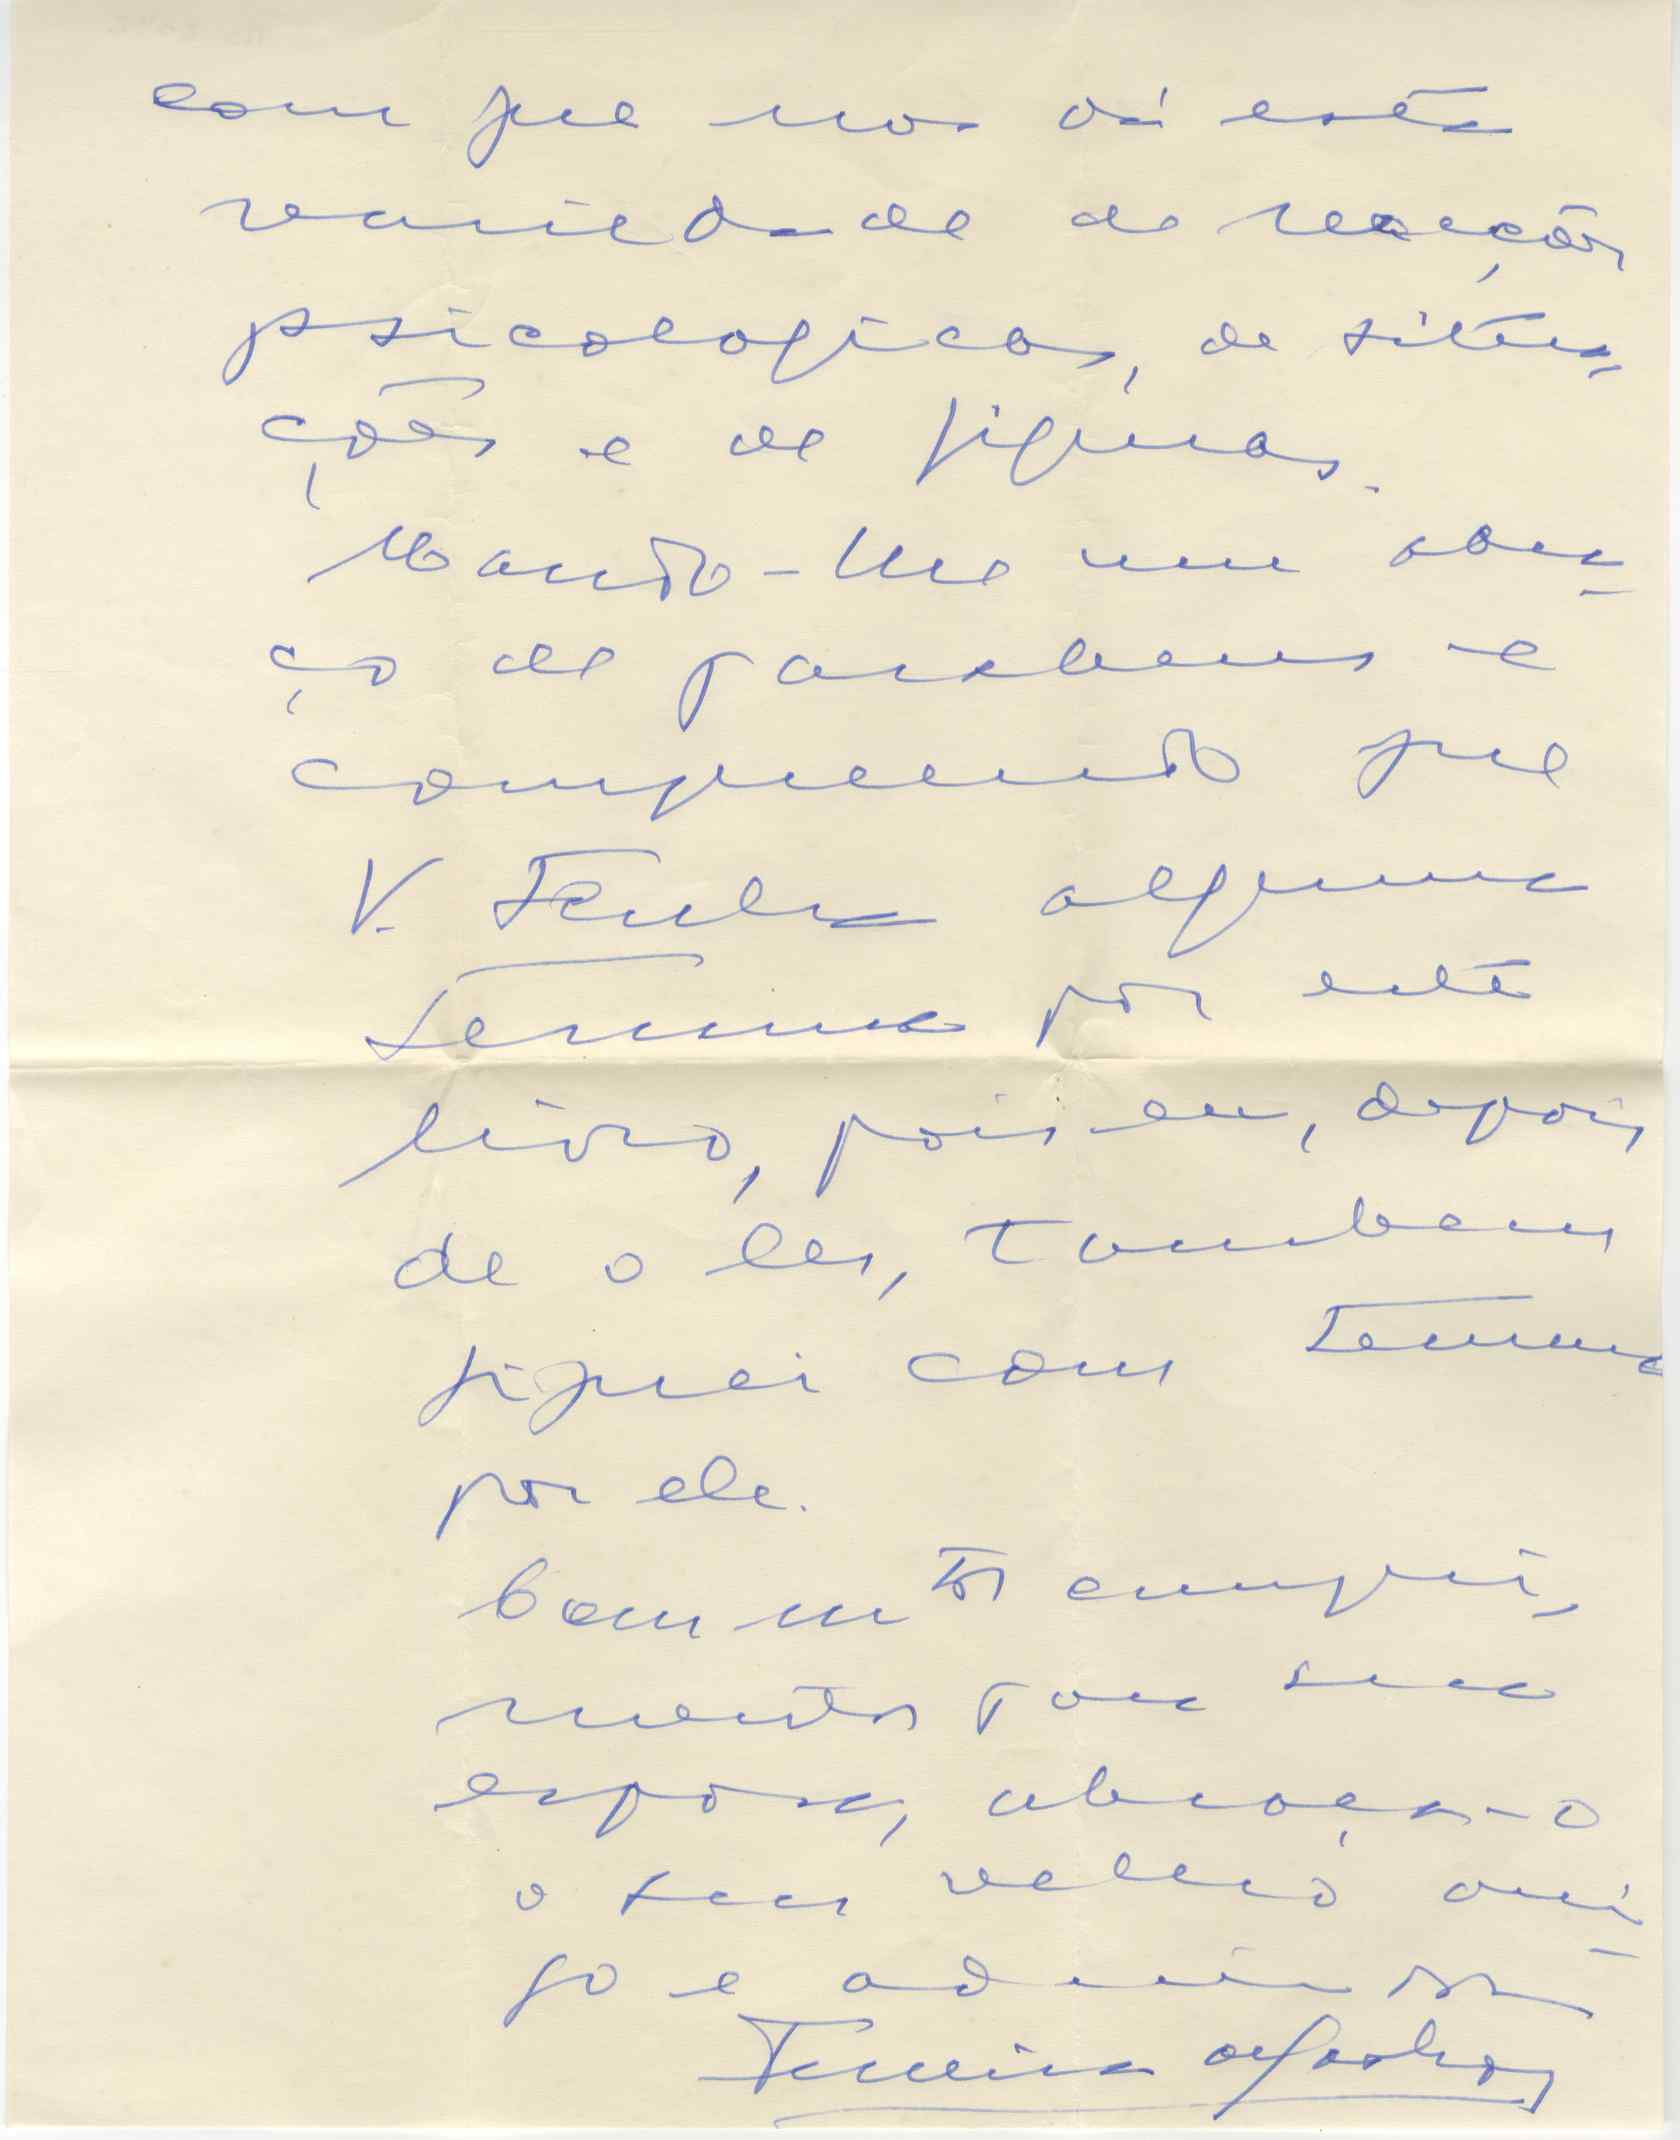 com que nos dá esta
variedade de reacções
psicologicas, de situa-
ções e de figuras.
Mando-lhe um abra-
ço de parabens e
compreendo que
V. tenha alguma
ternura por este
livro, pois eu, depois
de o ler, tambem
fiquei com ternura
por ele.
Com mtos cumpri-
mentos para sua
esposa, abraça-o
o seu velho ami-
go e admirador
Ferreira de Castro